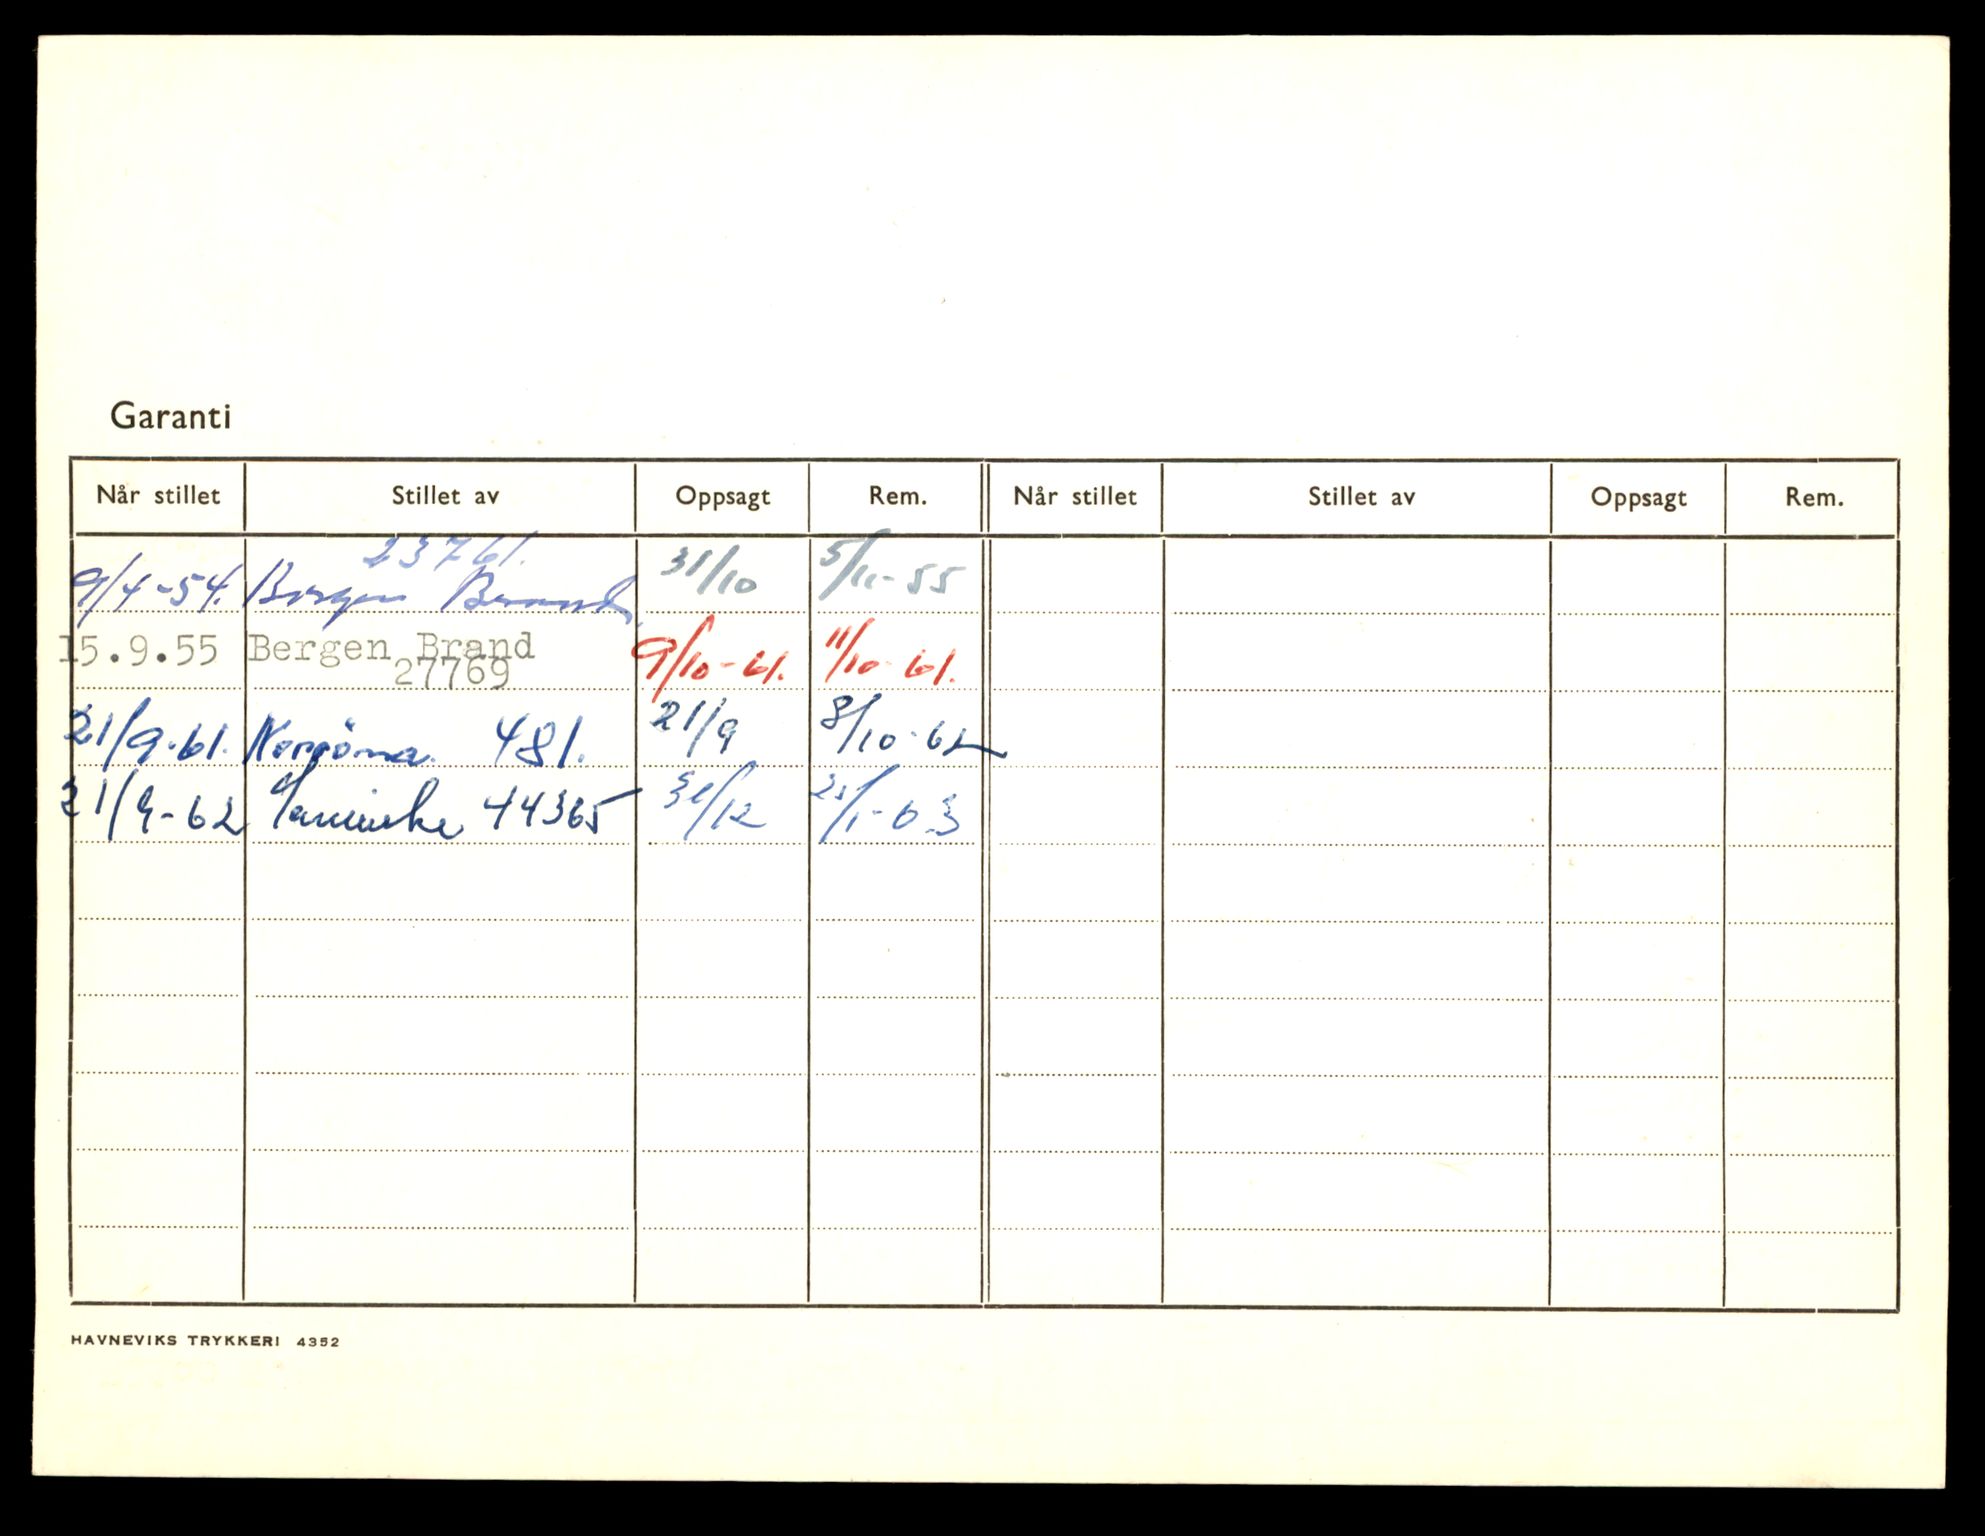 Garanti
Når stillet Stillet av Oppsagt Rem. Når stillet Stillet av Oppsagt Rem.
23761.
9/4-54. Bergen Brand 31/10 5/11-55
15.9.55 Bergen Brand 9/10-61. 11/10-61.
27769
21/9-61. Norröna. 481. 21/9 8/10-62
21/9-62 44365 31/12 /1-63
HAVNEVIKS TRYKKERI 4352